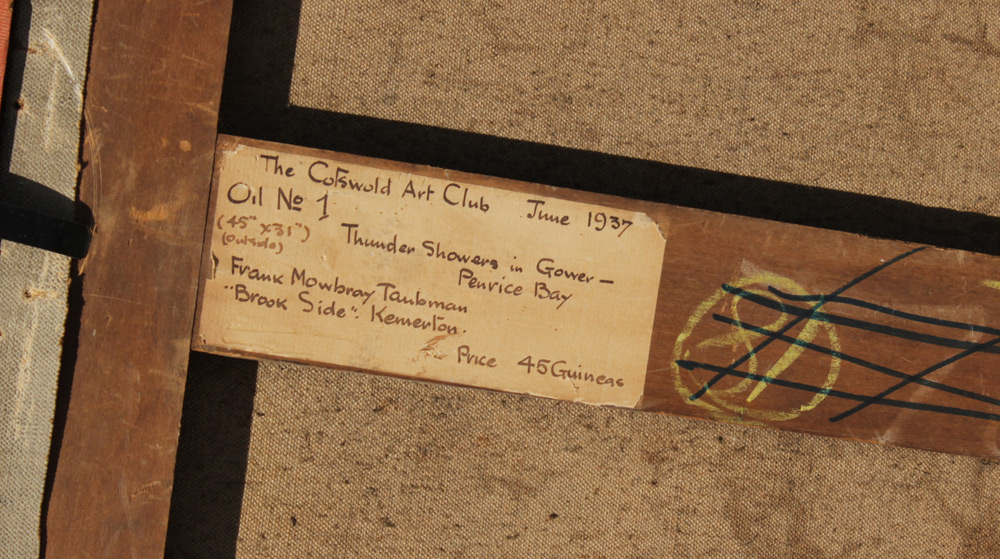 The Cotswold Art Club June 1937
Oil No 1
(45" x 31")
(outside)
Thunder Showers in Gower —
Penrice Bay
Frank Mowbray Taubman
"Brook Side". Kemerton.
Price 45 Guineas